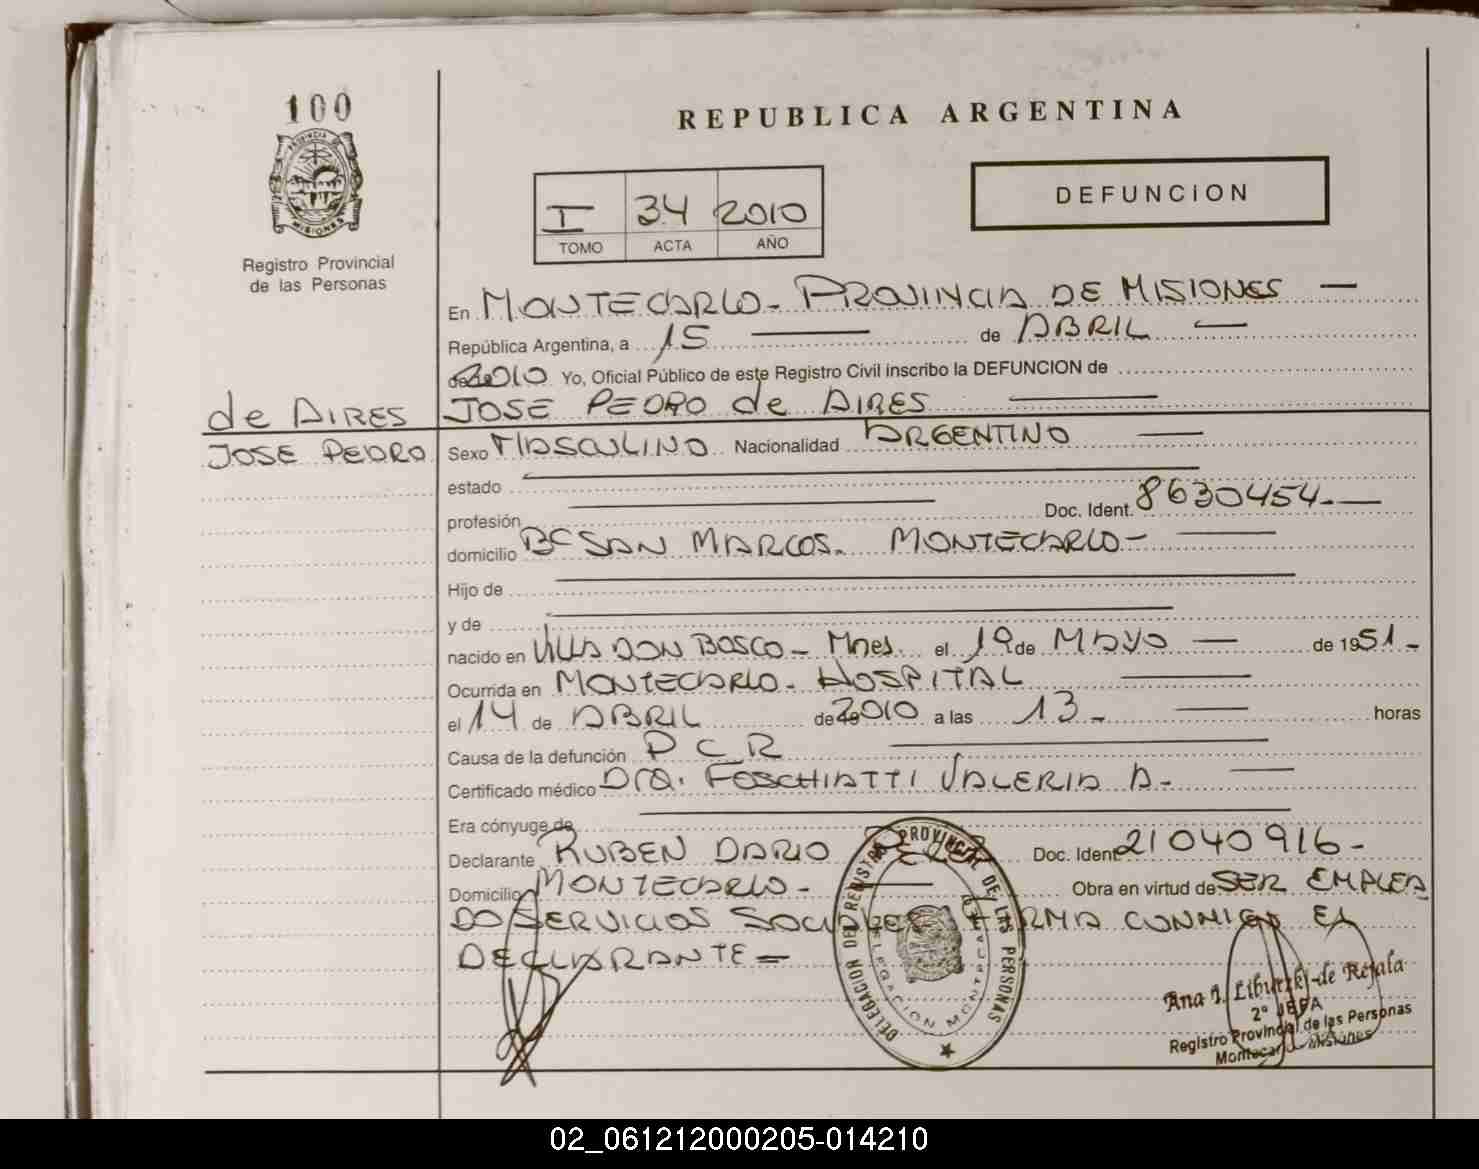 100
PROVINCIA
MISIONES
Registro Provincial
de las Personas
REPUBLICA ARGENTINA
I 34 2010
TOMO ACTA AÑO
DEFUNCION
En MONTECARLO - PROVINCIA DE MISIONES —
República Argentina, a 15 — de ABRIL —
de 2010 Yo, Oficial Público de este Registro Civil inscribo la DEFUNCION de
de AIRES JOSE PEDRO de AIRES —
JOSE PEDRO Sexo MASCULINO Nacionalidad ARGENTINO —
estado —
profesión — Doc. Ident. 8630454-—
domicilio Bº SAN MARCOS. MONTECARLO- —
Hijo de —
y de —
nacido en VILLA DON BOSCO - Mnes. el 19 de MAYO — de 1951-
Ocurrida en MONTECARLO - HOSPITAL —
el 14 de ABRIL de 2010 a las 13- — horas
Causa de la defunción P C R —
Certificado médico Dra. FOSCHIATTI VALERIA A- —
Era cónyuge de —
Declarante RUBEN DARIO Doc. Ident 21040916-
Domicilio MONTECARLO- — Obra en virtud de SER EMPLEA
DO SERVICIOS SOCIALES FIRMA CONMIGO EL
DECLARANTE=
DELEGACION DEL REGISTRO PROVINCIAL DE LAS PERSONAS
DELEGACION MONTECARLO
Ana I. Libutzki de Rejala
2º JEFA
Registro Provincial de las Personas
Montecarlo - Misiones
02_061212000205-014210